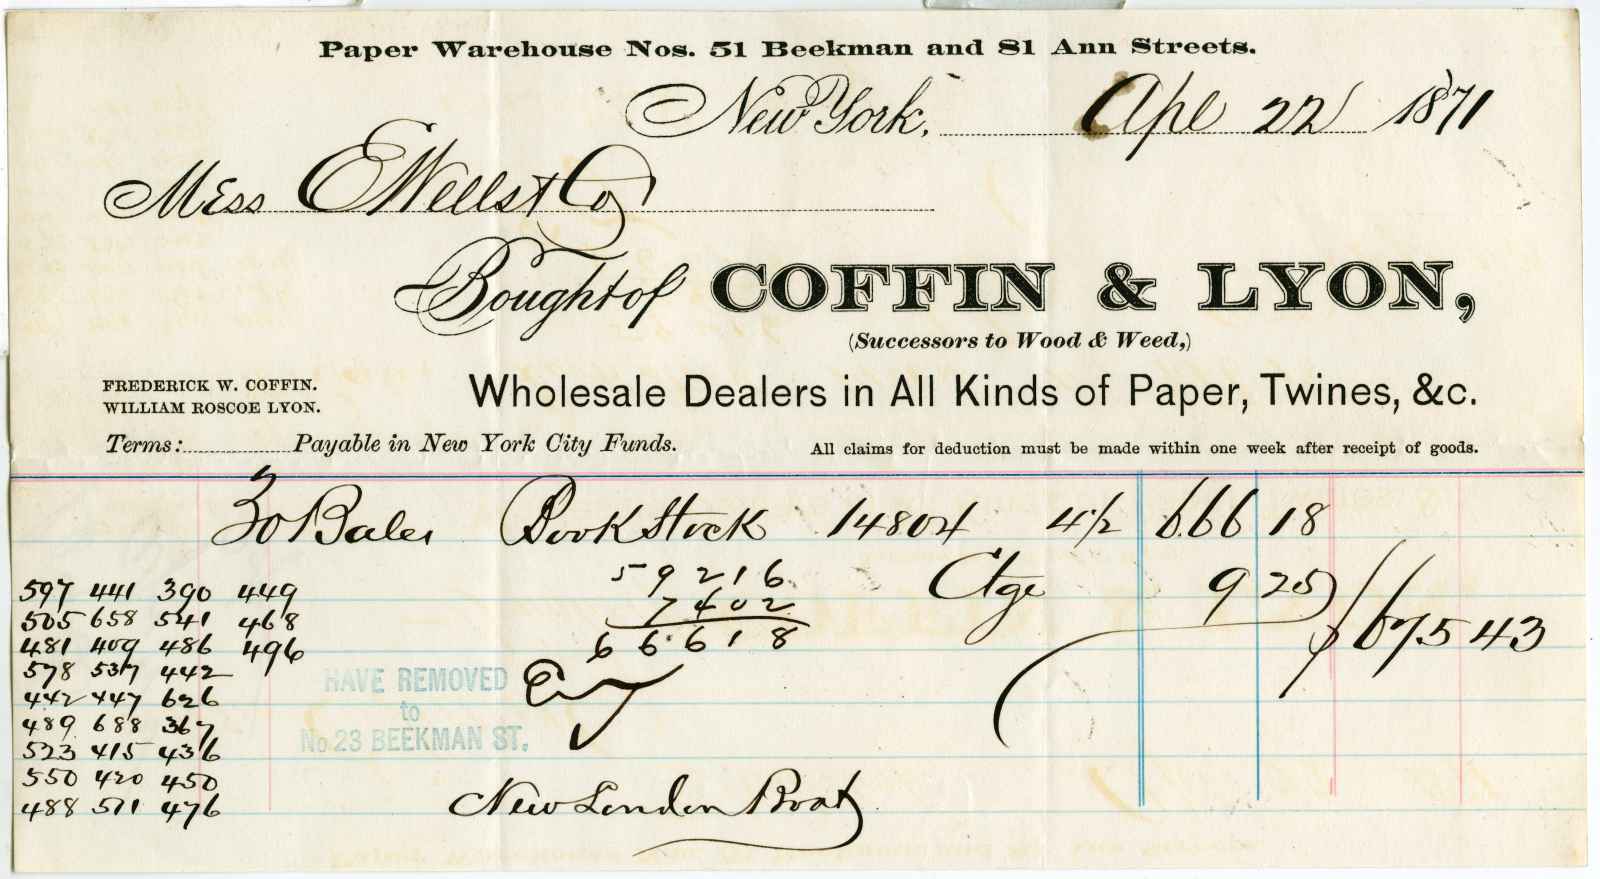 Paper Warehouse Nos. 51 Beekman and 81 Ann Streets.
New York, Apl 22 1871
Mess E Wells & Co
Bought of COFFIN & LYON,
(Successors to Wood & Weed,)
FREDERICK W. COFFIN.
WILLIAM ROSCOE LYON.
Wholesale Dealers in All Kinds of Paper, Twines, &c.
Terms: Payable in New York City Funds.
All claims for deduction must be made within one week after receipt of goods.
30 Bales Book Stock 14804 4/2 666 18
59216 Ctge 9 25
7402
66618 $675 43
597 441 390 449
505 658 541 468
481 409 486 496
578 537 442
442 447 626
489 688 367
523 415 436
550 420 450
488 511 476
HAVE REMOVED
to
No. 23 BEEKMAN ST.
New London Boat